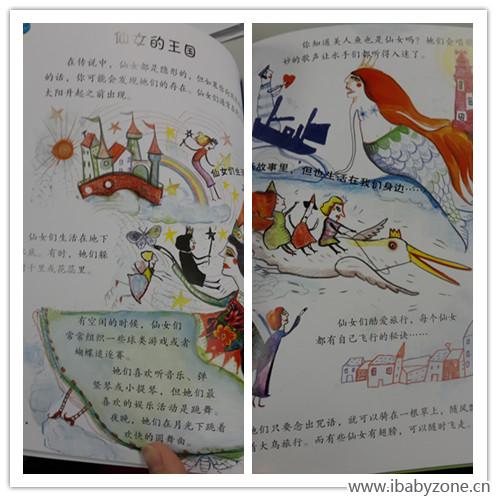 仙女的王国
在传说中，仙女都是隐形的，但如果
的话，你可能会发现她们的存在。仙女们通常
太阳升起之前出现。
仙女们生
仙女们生活在地下
水底。有时，她们躲
千里或花蕊里。
有空闲的时候，仙女们
常常组织一些球类游戏或者
蝴蝶追逐赛。
她们喜欢听音乐、弹
竖琴或小提琴，但她们最
喜欢的娱乐活动是跳舞。
夜晚，她们在月光下跳着
欢快的圆舞曲。
你知道美人鱼也是仙女吗？她们会唱
妙的歌声让水手们都听得入迷了。
故事里，但也生活在我们身边……
仙女们酷爱旅行，每个仙女
都有自己飞行的秘诀……
她们只要念出咒语，就可以骑在一根草上，随风
着大鸟旅行。而有些仙女有翅膀，可以随时飞走。
www.ibabyzone.cn